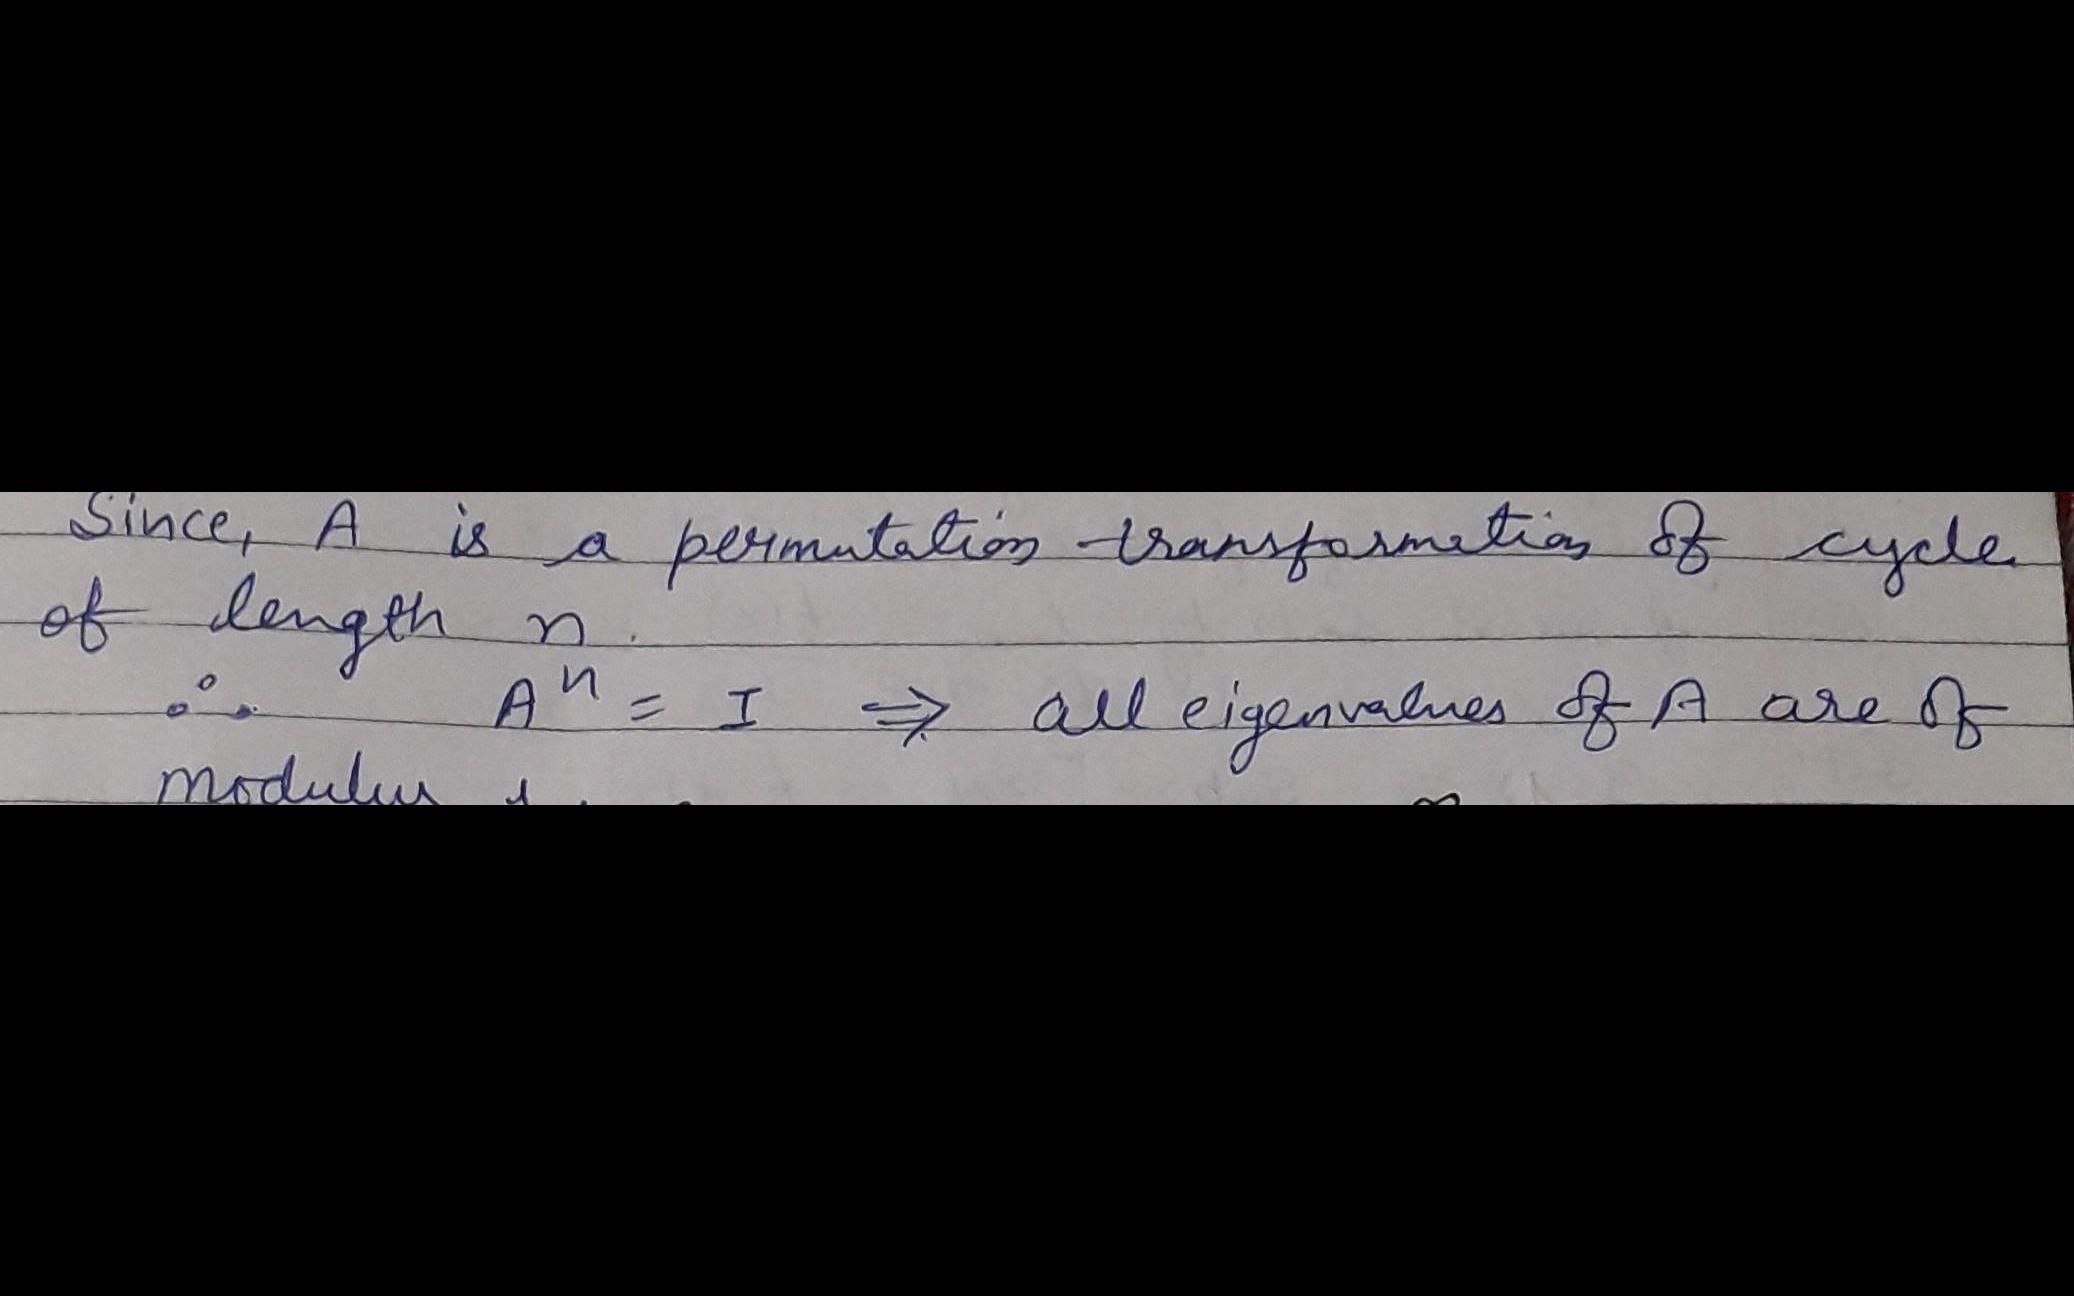 Since, A is a permutation transformation of cycle
of length n.
∴ Aⁿ = I ⇒ all eigenvalues of A are of
modulus 1.